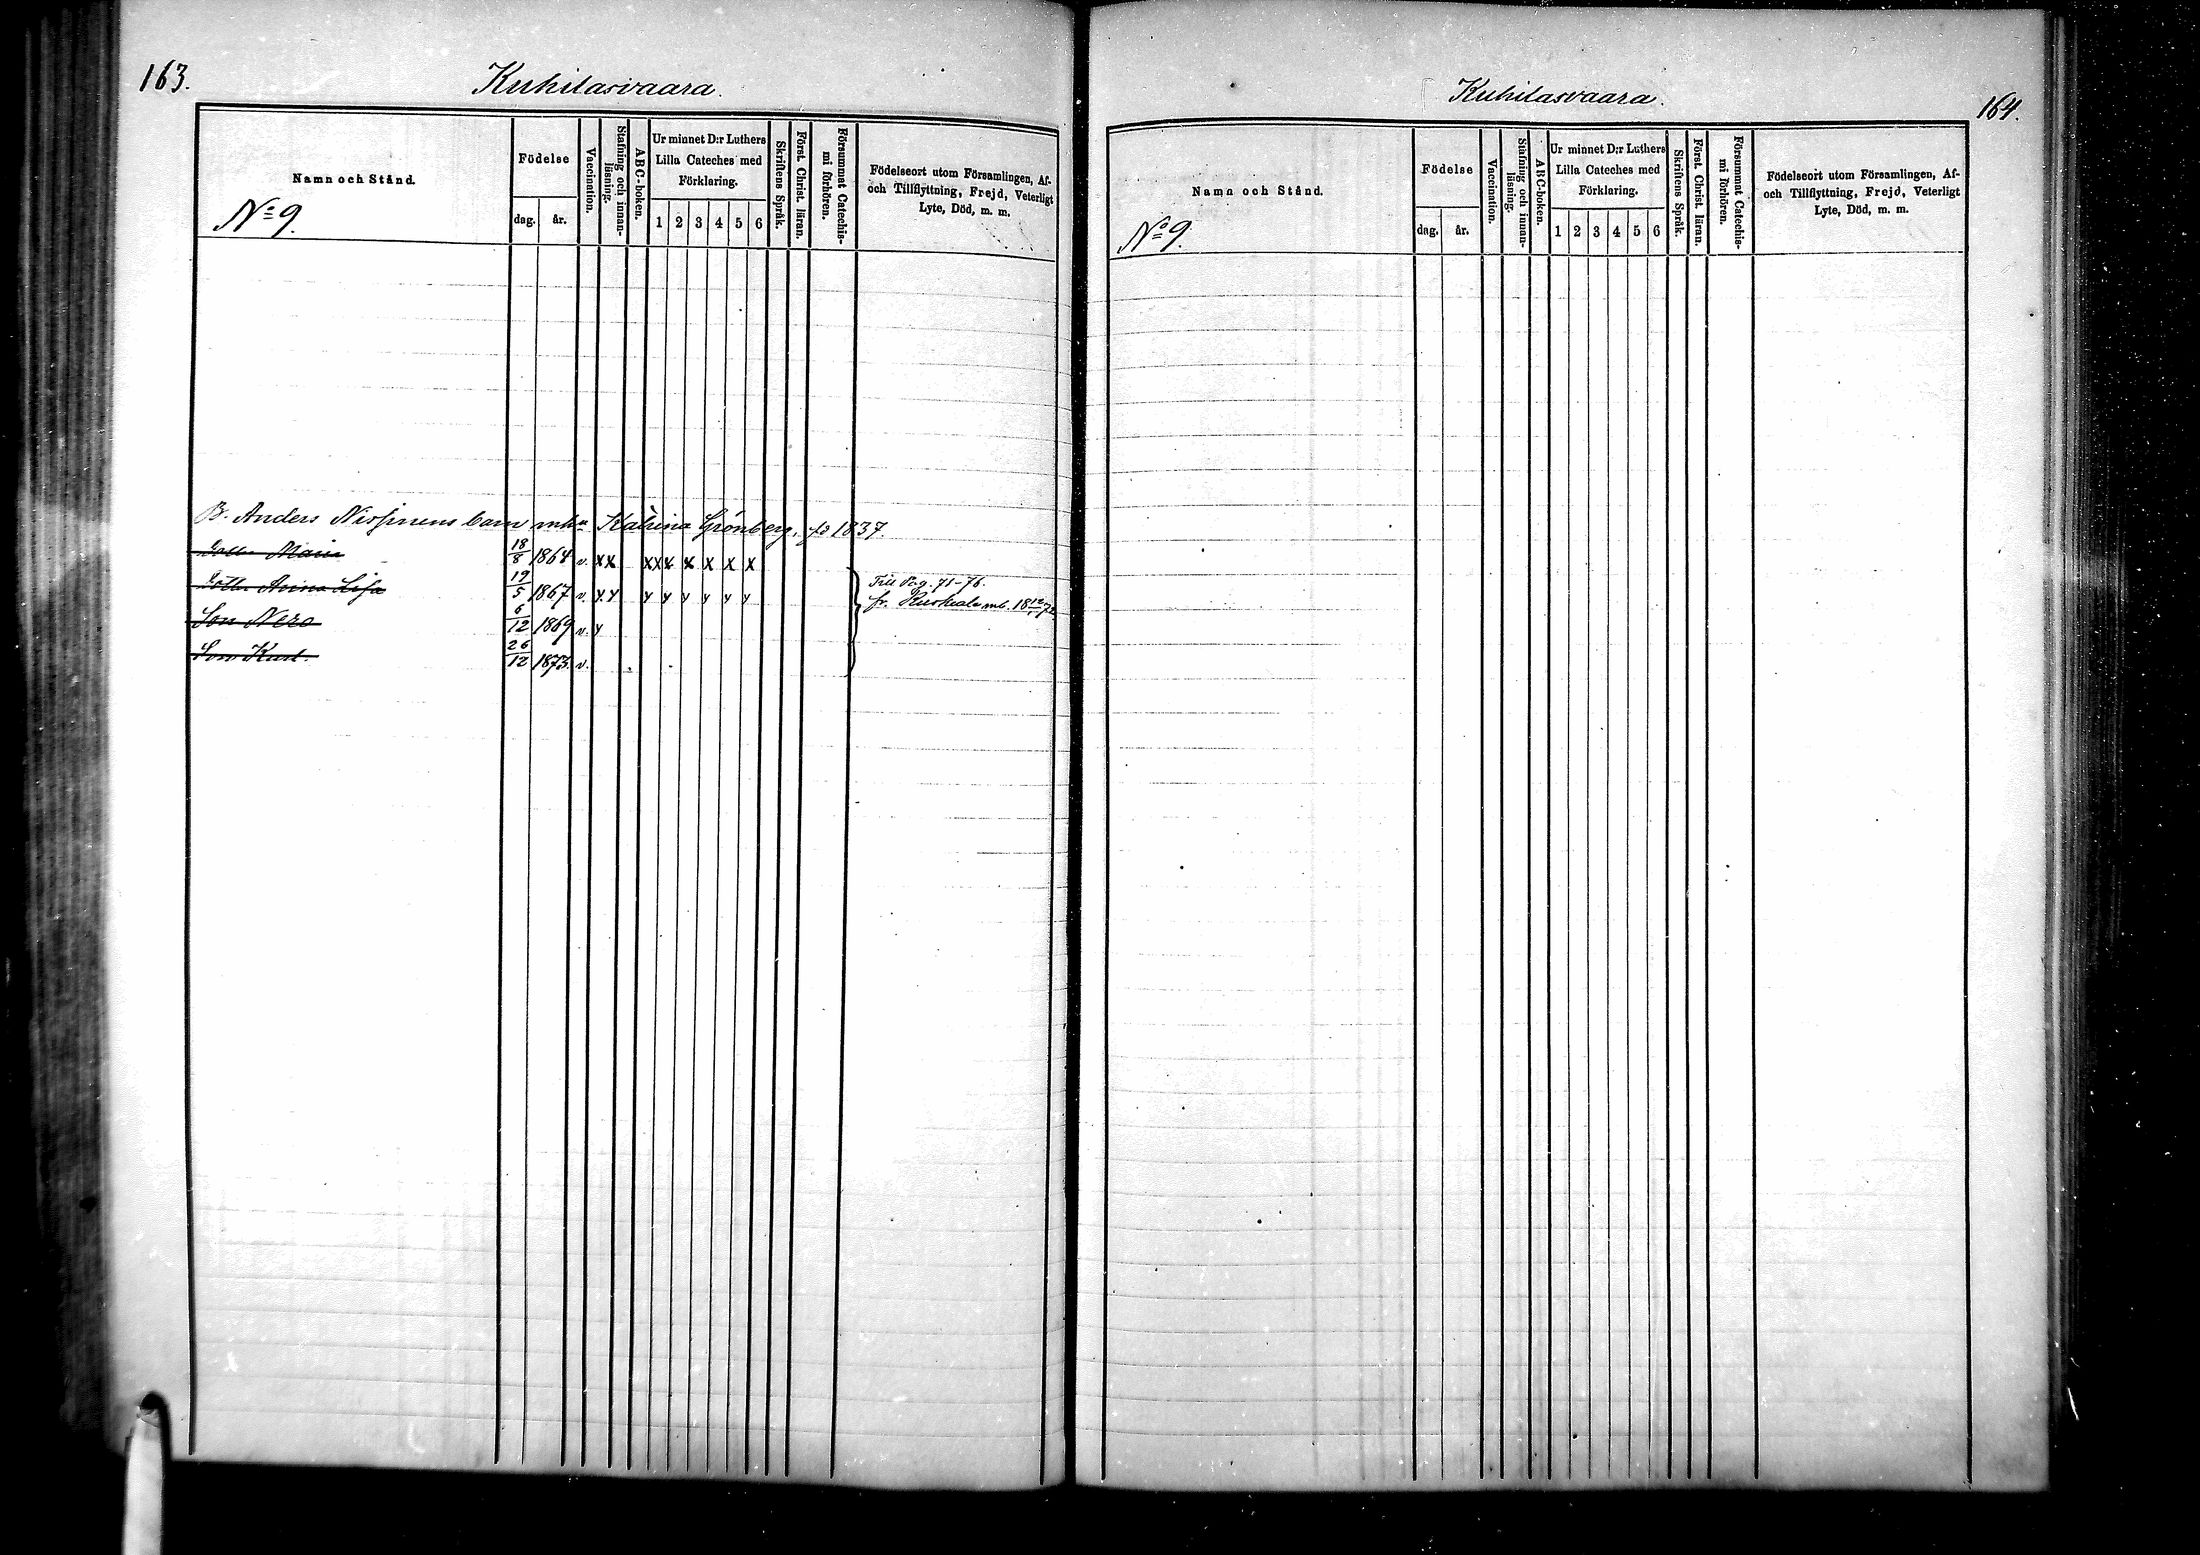 163.
Kuhilasvaara.
Namn och Stånd.
Nº 9.
Födelse
dag. år.
Vaccination.
Stafning och innanläsning.
ABC-boken.
Ur minnet D:r Luthers
Lilla Cateches med
Förklaring.
1 2 3 4 5 6
Skriftens Språk.
Först. Christ. läran.
Försummat Catechismi förhören.
Födelseort utom Församlingen, Af-
och Tillflyttning, Frejd, Veterligt
Lyte, Död, m. m.
B. Anders Nissinens barn Katrina Grönberg, fd 1837.
Maria 18/8 1864 v. x x x x x x x x x
Anna Lisa 19/5 1867 v. y y y y y y y y
Son 6/12 1869 v. y
Son 26/12 1873. v.
Till Pag. 71-76.
fr.
Kuhilasvaara.
164.
Namn och Stånd.
Nº 9.
Födelse
dag. år.
Vaccination.
Stafning och innanläsning.
ABC-boken.
Ur minnet D:r Luthers
Lilla Cateches med
Förklaring.
1 2 3 4 5 6
Skriftens Språk.
Först. Christ. läran.
Försummat Catechismi förhören.
Födelseort utom Församlingen, Af-
och Tillflyttning, Frejd, Veterligt
Lyte, Död, m. m.